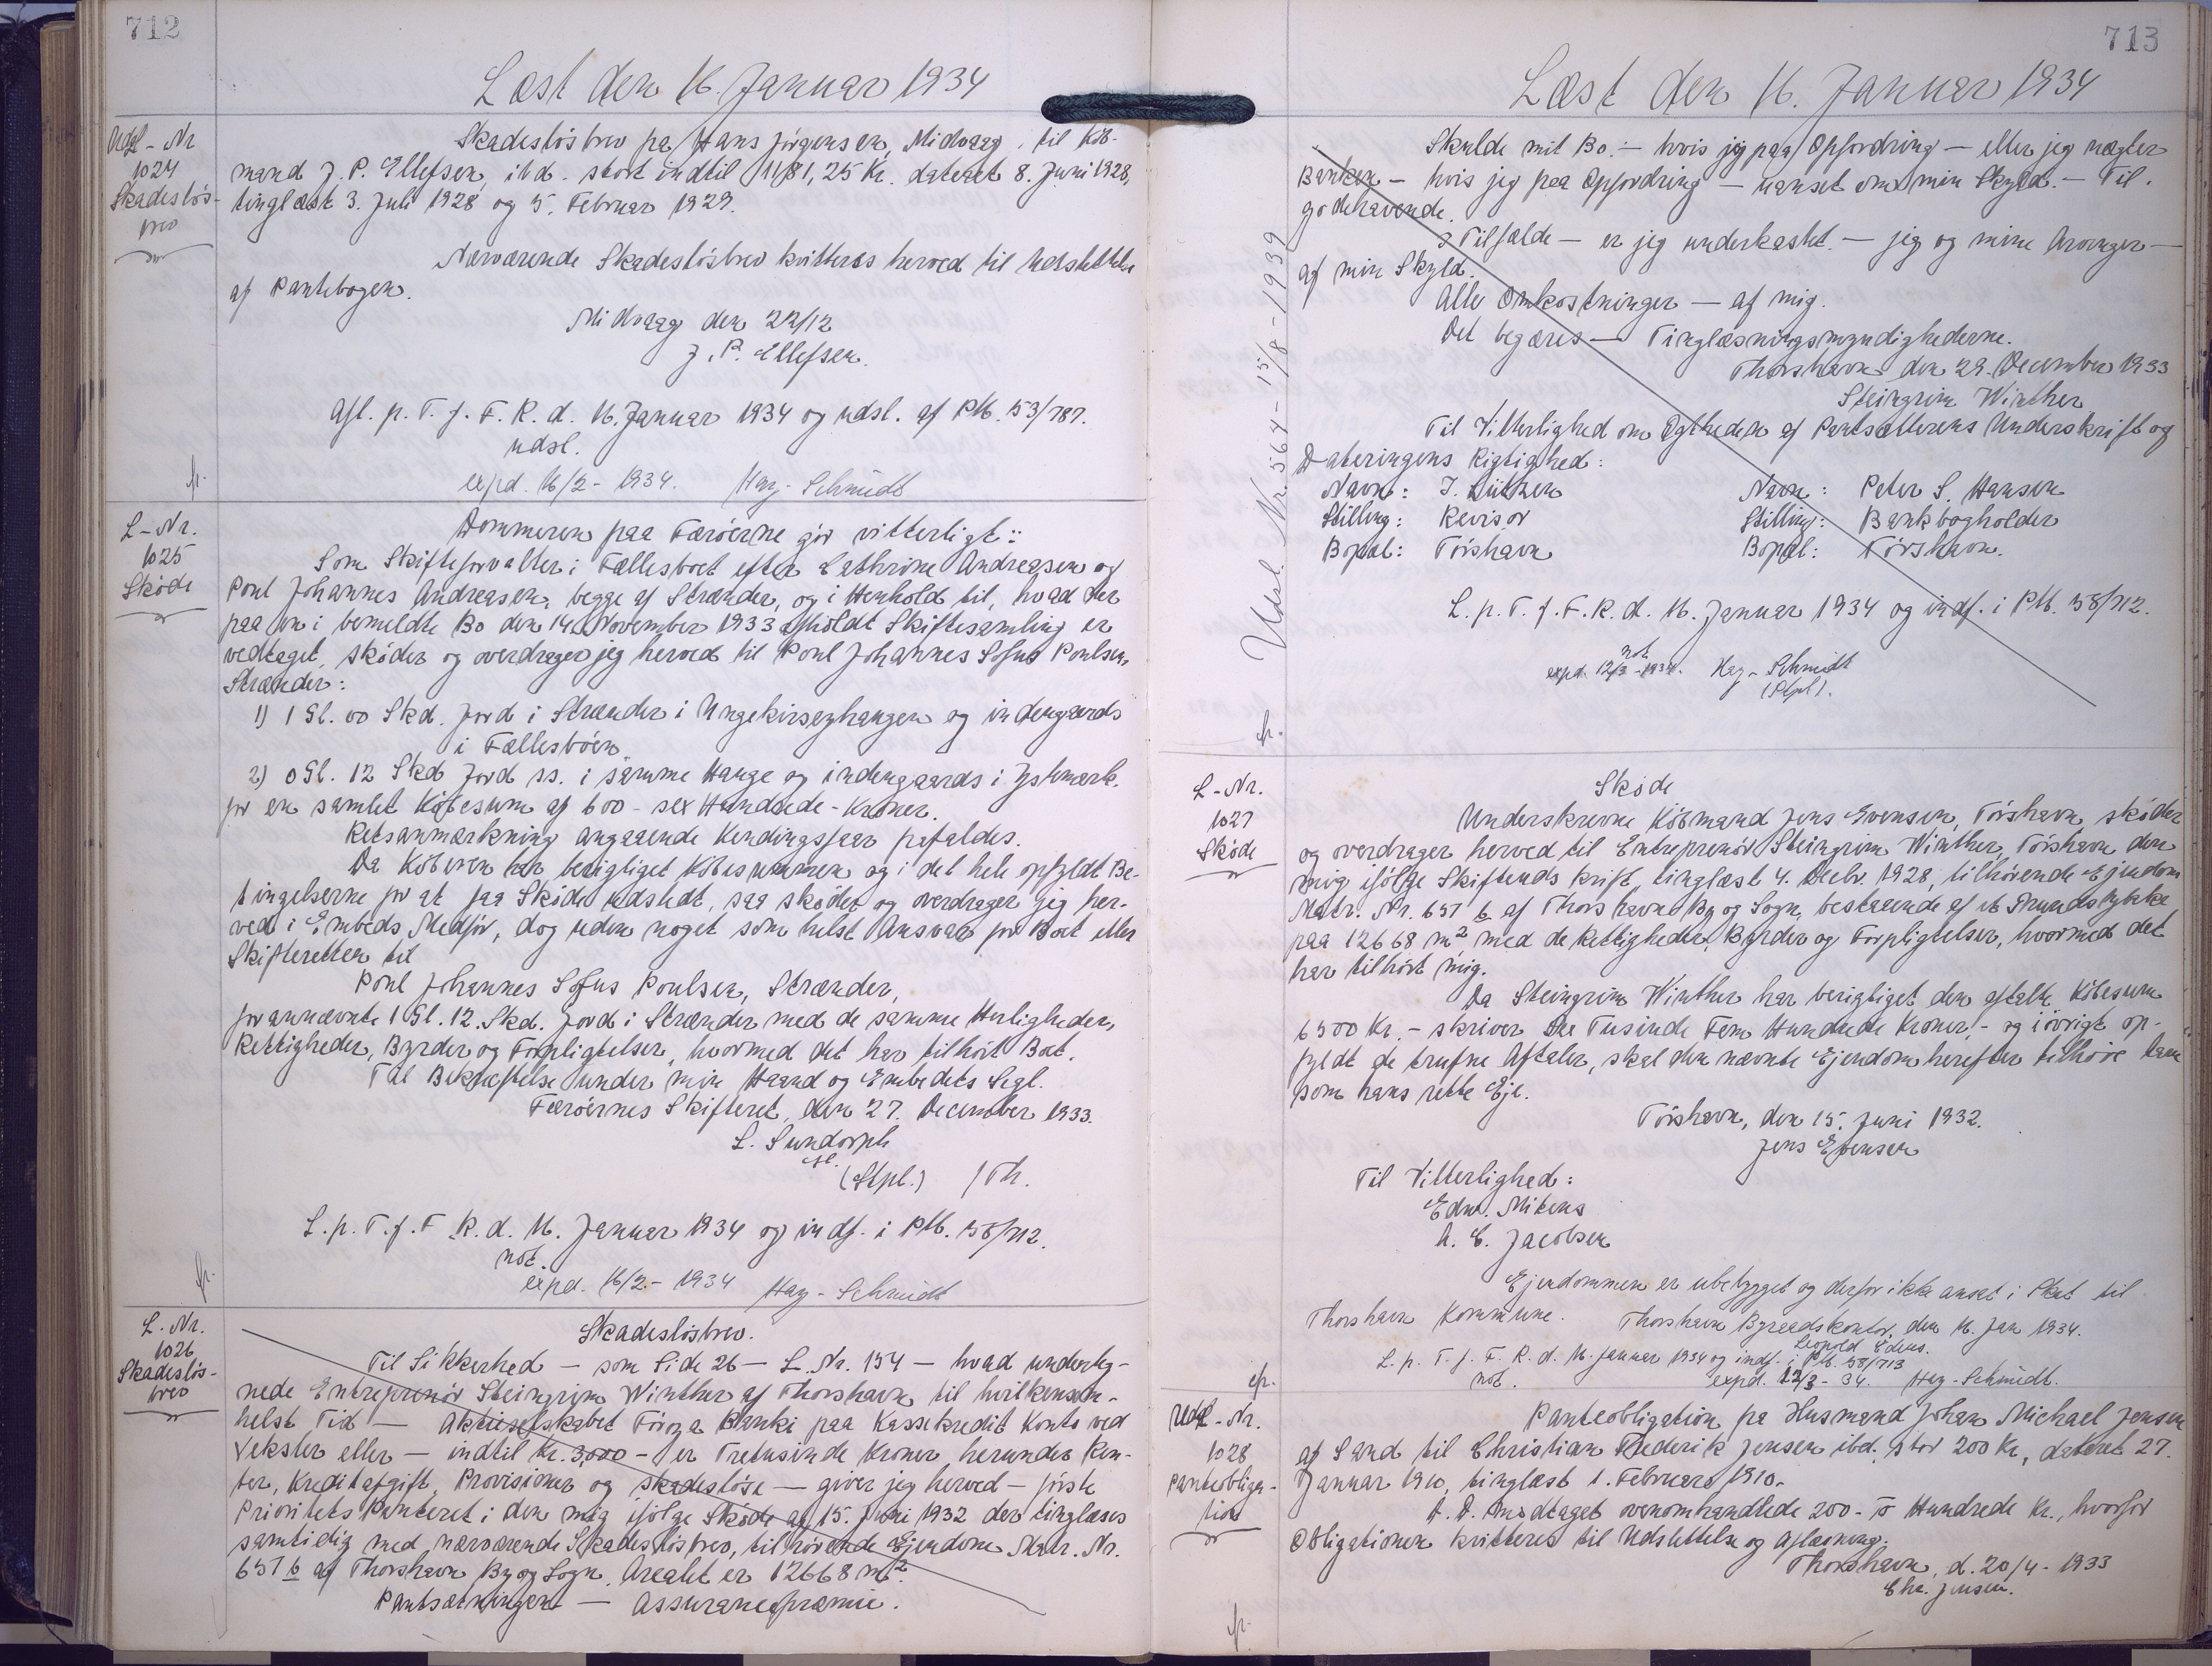 712
Læst den 16. Januar 1934
Udsl-Nr
1024
Skadeslös-
brev
Skadeslösbrev fra Hans Jörgensen, Midvaag, til Köb-
mand J. P. Ellefsen, ibd. stort indtil 1181,25 Kr. dateret 8. Juni 1928,
tinglæst 3. Juli 1928 og 5. Februar 1929.
Nærværende Skadeslösbrev kvitteres herved til Udslettelse
af Pantebogen.
Midvaag den 22/12
J. P. Ellefsen.
Afl. p. T. f. F. R. d. 16. Januar 1934 og udsl. af Ptb. 53/787.
udsl.
expd. 16/2 - 1934. Hag-Schmidt
fr.
L-Nr.
1025
Sköde
Dommeren paa Færöerne gör vitterligt:
Som Skifteforvalter i Fællesboet efter Cathrine Andreasen og
Poul Johannes Andreasen, begge af Strænder, og i Henhold til, hvad der
paa en i bemeldte Bo den 14. November 1933 afholdt Skiftesamling er
vedtaget, sköder og overdrager jeg herved til Poul Johannes Sofus Poulsen,
Strænder:
1) 1 Gl. 00 Skd. Jord i Strænder i Ungekirseyhaugen og indengaards
i Fællesböen
2) 0 Gl. 12 Skd Jord ss. i samme Hauge og indengaards i Ystmark.
for en samlet Köbesum af 600 - sex Hundrede - Kroner.
Retsanmærkning angaaende Kendingsjaar frafaldes.
Da Köberen har berigtiget Köbesummen og i det hele opfyldt Be-
tingelserne for at faa Sköde udstedt, saa sköder og overdrager jeg her-
ved i Embeds Medför, dog uden noget som helst Ansvar for Boet eller
Skifteretten til
Poul Johannes Sofus Poulsen, Strænder,
forannævnte 1 Gl. 12. Skd. Jord i Strænder med de samme Herligheder,
Rettigheder, Byrder og Forpligtelser, hvormed det har tilhört Boet.
Til Bekræftelse under min Haand og Embedets Segl.
Færöernes Skifteret, den 27. December 1933.
L. Sundorph
(Stpl.) /Th.
L. p. T. f. F. R. d. 16. Januar 1934 og indf. i Ptb. 58/712.
not.
expd. 16/2 - 1934 Hag-Schmidt
fr.
L. Nr.
1026
Skadeslös-
brev
Skadeslösbrev.
Til Sikkerhed — som Side 26 — L. Nr. 154 — hvad undertg-
nede Entreprenör Steingrim Winther af Thorshavn til hvilkensom-
helst Tid — Aktieselskabet Föroya Banki paa Kassekredit Konto ved
Veksler eller — indtil Kr. 3,000 - er Tretusinde Kroner herunder Ren-
ter, Kreditafgift, Provisioner og skadeslöse — giver jeg herved — förste
Prioritets Panteret i den mig ifölge Sköde af 15. Juni 1932 der tinglæses
samtidig med nærværende Skadeslösbrev, tilhörende Ejendom Matr. Nr.
657 b af Thorshavn By og Sogn. Arealet er 12668 m².
Pantsætningen — Assurancepræmie.
713
Læst den 16. Januar 1934
Udsl. Nr. 564 - 15/8 - 1939
Skulde mit Bo. — hvis jeg paa Opfordring — eller jeg nægter
Banken — hvis jeg paa Opfordring — uanset om min Skyld. — Til.
godehavende.
I Tilfælde — er jeg underkastet — jeg og mine Arvinger —
af min Skyld.
Alle Omkostninger — af mig.
Det begæres — Tinglæsningsmyndighederne.
Thorshavn den 29. December 1933
Steingrim Winther
Til Vitterlighed om Ægtheden af Pantsætterens Underskrift og
Dateringens Rigtighed:
Navn: J. Lützen Navn: Peter S. Hansen
Stilling: Revisor Stilling: Bankbogholder
Bopæl: Tórshavn Bopæl: Tórshavn.
L. p. T. f. F. R. d. 16. Januar 1934 og indf. i Ptb. 58/712.
not.
expd. 12/3 - 1934. Hag-Schmidt
(Stpl).
fr.
L-Nr.
1027
Sköde
Sköde
Underskrevne Köbmand Jens Evensen, Tórshavn, sköder
og overdrager herved til Entreprenör Steingrim Winther, Tórshavn den
mig ifölge Skiftendskrift, tinglæst 4. Decbr. 1928, tilhörende Ejendom
Matr. Nr. 657 b af Thorshavns By og Sogn, bestaaende af et Grundstykke
paa 12668 m² med de Rettigheder, Byrder og Forpligtelser, hvormed det
har tilhört mig.
Da Steingrim Winther har berigtiget den aftalte Köbesum
6500 Kr. - skriver Sex Tusinde Fem Hundrede Kroner, - og iövrigt op-
fyldt de trufne Aftaler, skal den nævnte Ejendom herefter tilhöre ham
som hans rette Eje.
Tórshavn, den 15. Juni 1932.
Jens Evensen
Til Vitterlighed:
Edw. Mitens
A. C. Jacobsen
Ejendommen er ubebygget og derfor ikke ansat i Skat til
Thorshavn Kommune. Thorshavn Byraadskontor, den 16. Jan 1934.
Leopold
L. p. T. f. F. R. d. 16. Januar 1934 og indf. i Ptb. 58/713
not. expd. 12/3 - 34. Hag-Schmidt.
fr.
Udsl-Nr.
1028
Panteobliga-
tion
Panteobligation fra Husmand Johan Michael Jensen
af Sand til Christian Frederik Jensen ibd. stor 200 Kr., dateret 27.
Januar 1910, tinglæst 1. Februar 1910.
D. D. modtaget ovenomhandlede 200 - To Hundrede Kr., hvorfor
Obligationen kvitteres til Udslettelse og Aflæsning.
Thorshavn, d. 20/4 - 1933
Chr. Jensen.
fr.